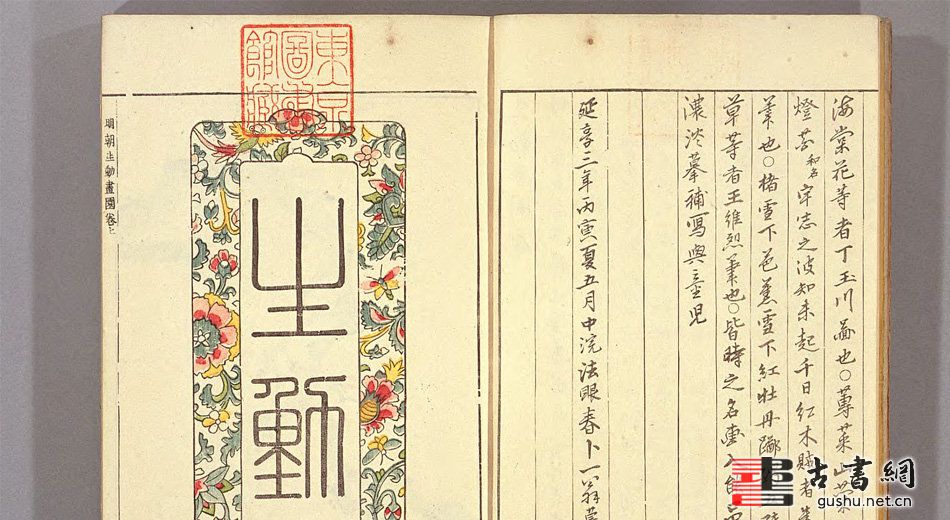 海棠花等者丁玉川画也○蓴菜山茶
燈芯和名宇志之波知未起千日紅木賊者
筆也○楮雪下芭蕉雪下紅牡丹
草等者王維烈筆也○皆時之名画
濃淡摹補寫與童児
延享三年丙寅夏五月中浣法眼春卜一翁
東京
圖書
館藏
生動
明朝生動畫園卷上
古書網
gushu.net.cn